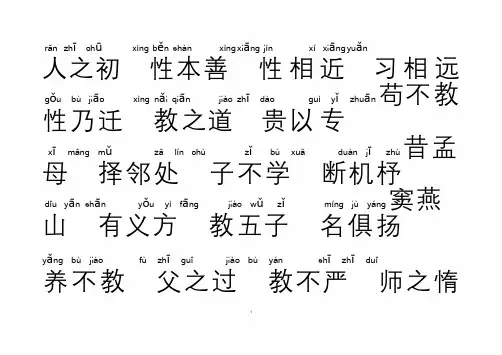 rén zhī chū xìng běn shàn xìng xiāng jìn xí xiāng yuǎn
人之初 性本善 性相近 习相远
gǒu bù jiào xìng nǎi qiān jiào zhī dào guì yǐ zhuān
性乃迁 教之道 贵以专 苟不教
xī mèng mǔ zé lín chù zǐ bù xué duàn jī zhù
母 择邻处 子不学 断机杼 昔孟
dòu yān shān yǒu yì fāng jiào wǔ zǐ míng jù yáng
山 有义方 教五子 名俱扬 窦燕
yǎng bù jiào fù zhī guò jiào bù yán shī zhī duò
养不教 父之过 教不严 师之惰